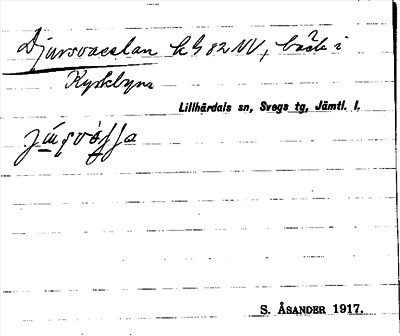 Djursvasslan kh 82 NV, bäck i
Kyrkbyn
Lillhärdals sn, Svegs tg, Jämtl. l.
S. ÅSANDER 1917.